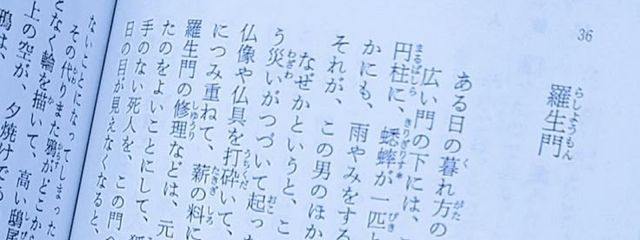 36
羅生門
ある日の暮れ方の
広い門の下には、
円柱に、蟋蟀が一匹と
かにも、雨やみをする
それが、この男のほか
なぜかというと、こ
う災いがつづいて起っ
仏像や仏具を打砕いて、
につみ重ねて、薪の料に
羅生門の修理などは、元
たのをよいことにして、
手のない死人を、この門
日の目が見えなくなると、
ないことになってしまった
その代りまた鴉がどこから
となく輪を描いて、高い鴟尾
上の空が、夕焼けで
鴉は、